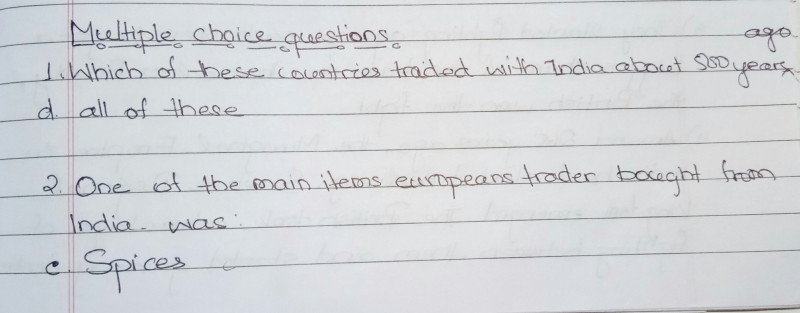 Multiple choice questions.
1. Which of these countries traded with India about 500 years ago
d. all of these
2. One of the main items europeans trader bought from
India was:
c. Spices